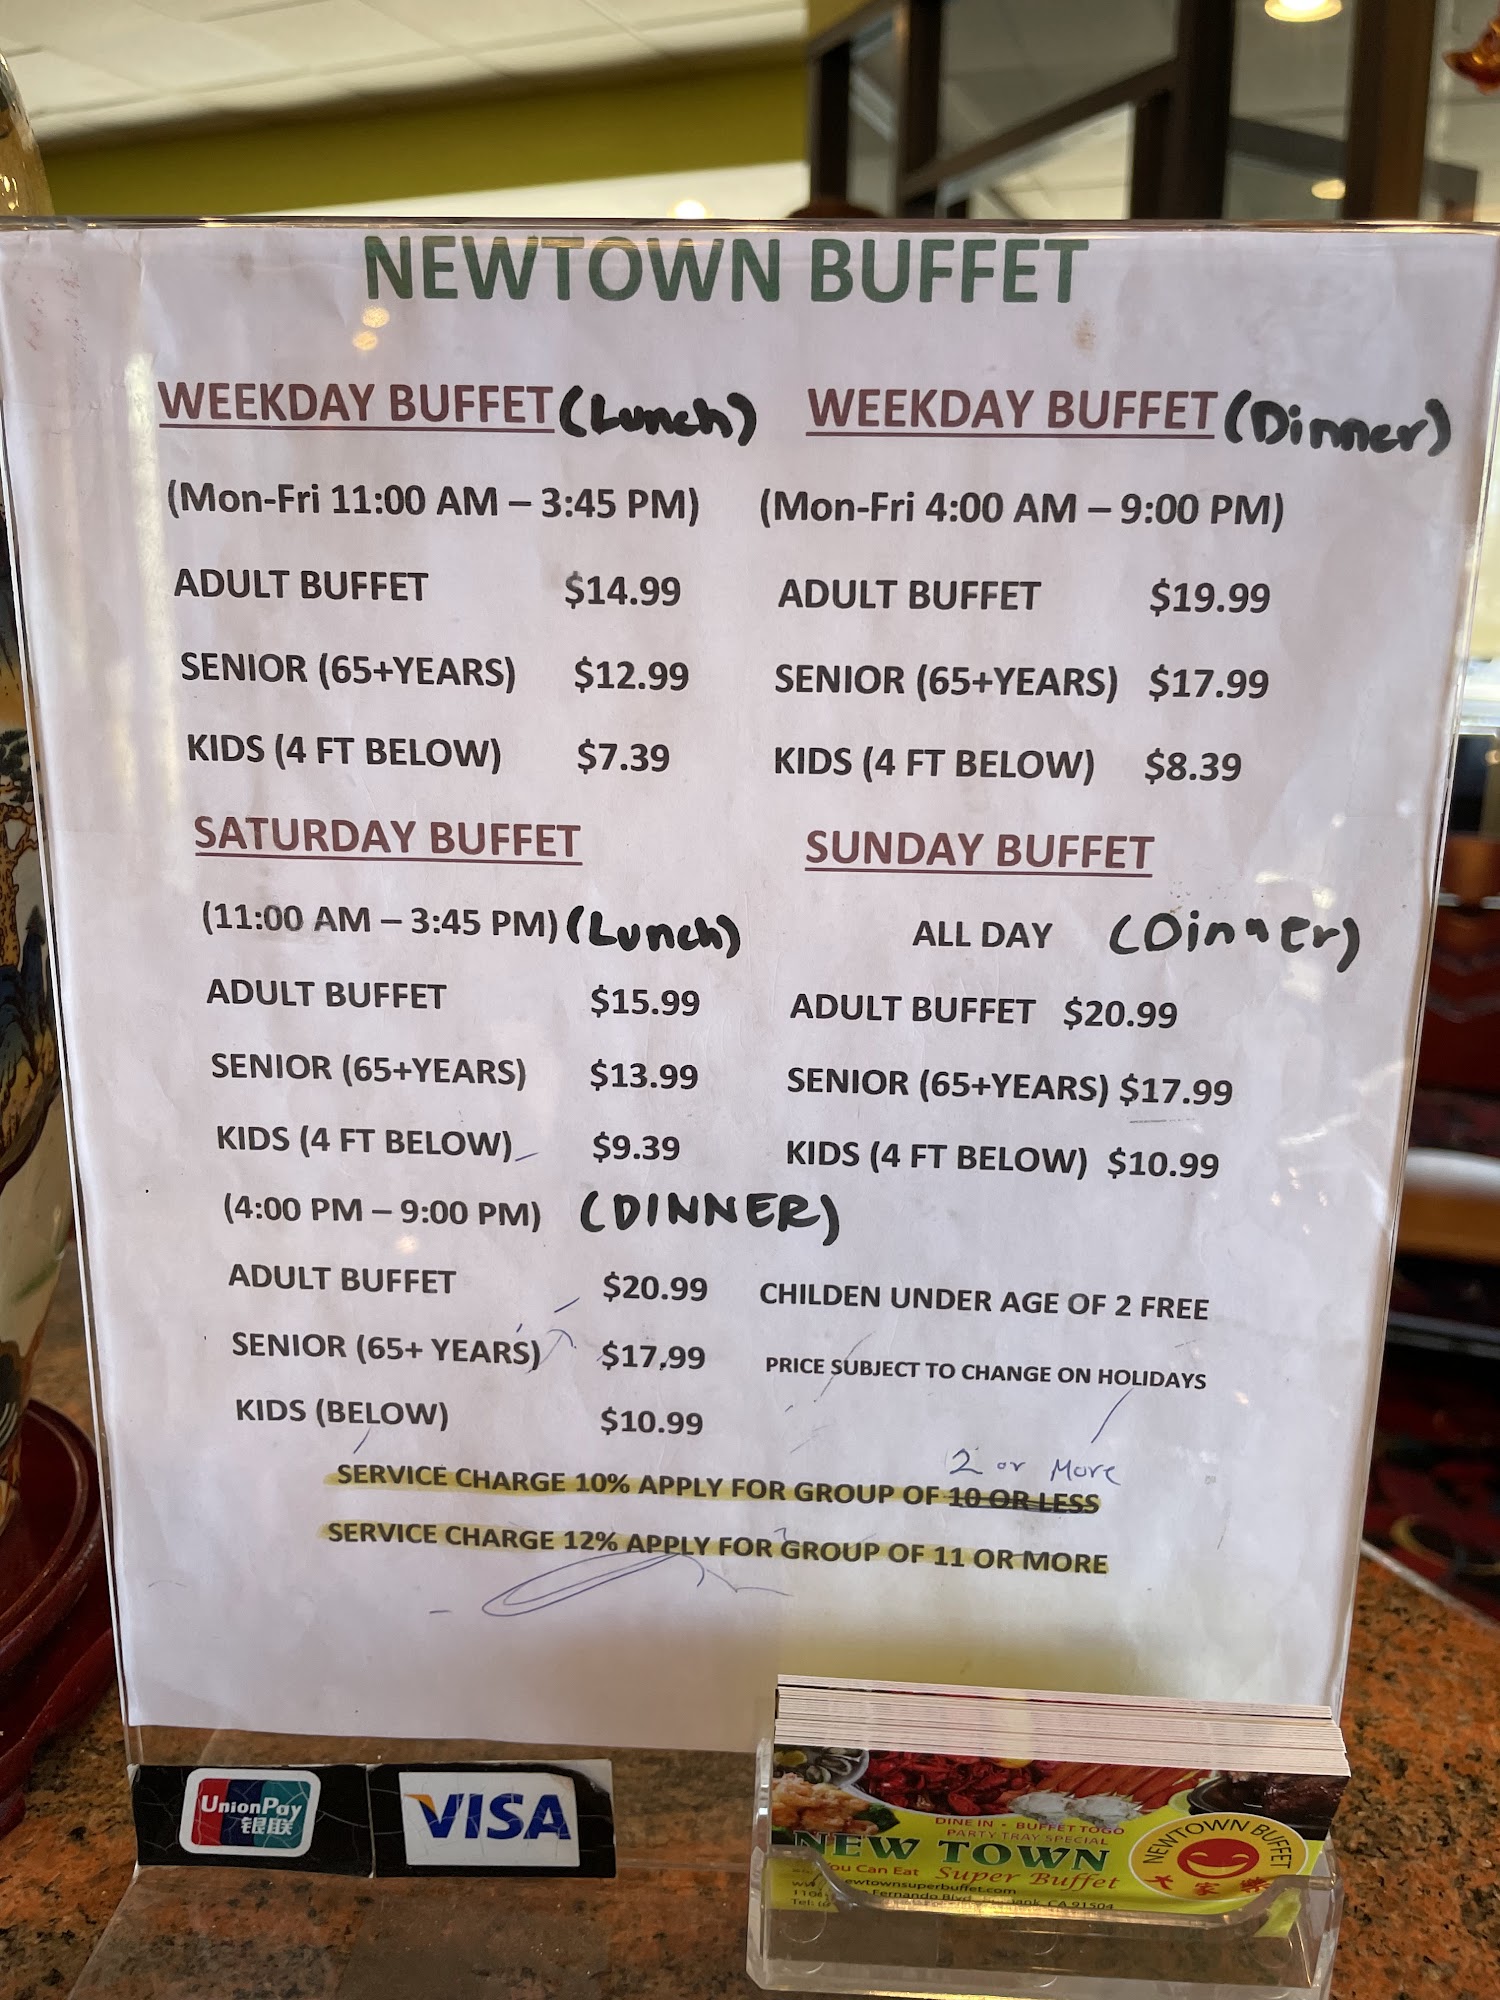 NEWTOWN BUFFET
WEEKDAY BUFFET (Lunch)
(Mon-Fri 11:00 AM – 3:45 PM)
ADULT BUFFET $14.99
SENIOR (65+YEARS) $12.99
KIDS (4 FT BELOW) $7.39
WEEKDAY BUFFET (Dinner)
(Mon-Fri 4:00 AM – 9:00 PM)
ADULT BUFFET $19.99
SENIOR (65+YEARS) $17.99
KIDS (4 FT BELOW) $8.39
SATURDAY BUFFET
(11:00 AM – 3:45 PM) (Lunch)
ADULT BUFFET $15.99
SENIOR (65+YEARS) $13.99
KIDS (4 FT BELOW) $9.39
(4:00 PM – 9:00 PM) (DINNER)
ADULT BUFFET $20.99
SENIOR (65+ YEARS) $17.99
KIDS (BELOW) $10.99
SUNDAY BUFFET
ALL DAY (Dinner)
ADULT BUFFET $20.99
SENIOR (65+YEARS) $17.99
KIDS (4 FT BELOW) $10.99
CHILDEN UNDER AGE OF 2 FREE
PRICE SUBJECT TO CHANGE ON HOLIDAYS
2 or More
SERVICE CHARGE 10% APPLY FOR GROUP OF 10 OR LESS
SERVICE CHARGE 12% APPLY FOR GROUP OF 11 OR MORE
UnionPay
银联
VISA
DINE IN • BUFFET TOGO
PARTY TRAY SPECIAL
NEW TOWN
You Can Eat Super Buffet
Fernando Blvd CA 91504
NEWTOWN BUFFET
大家樂